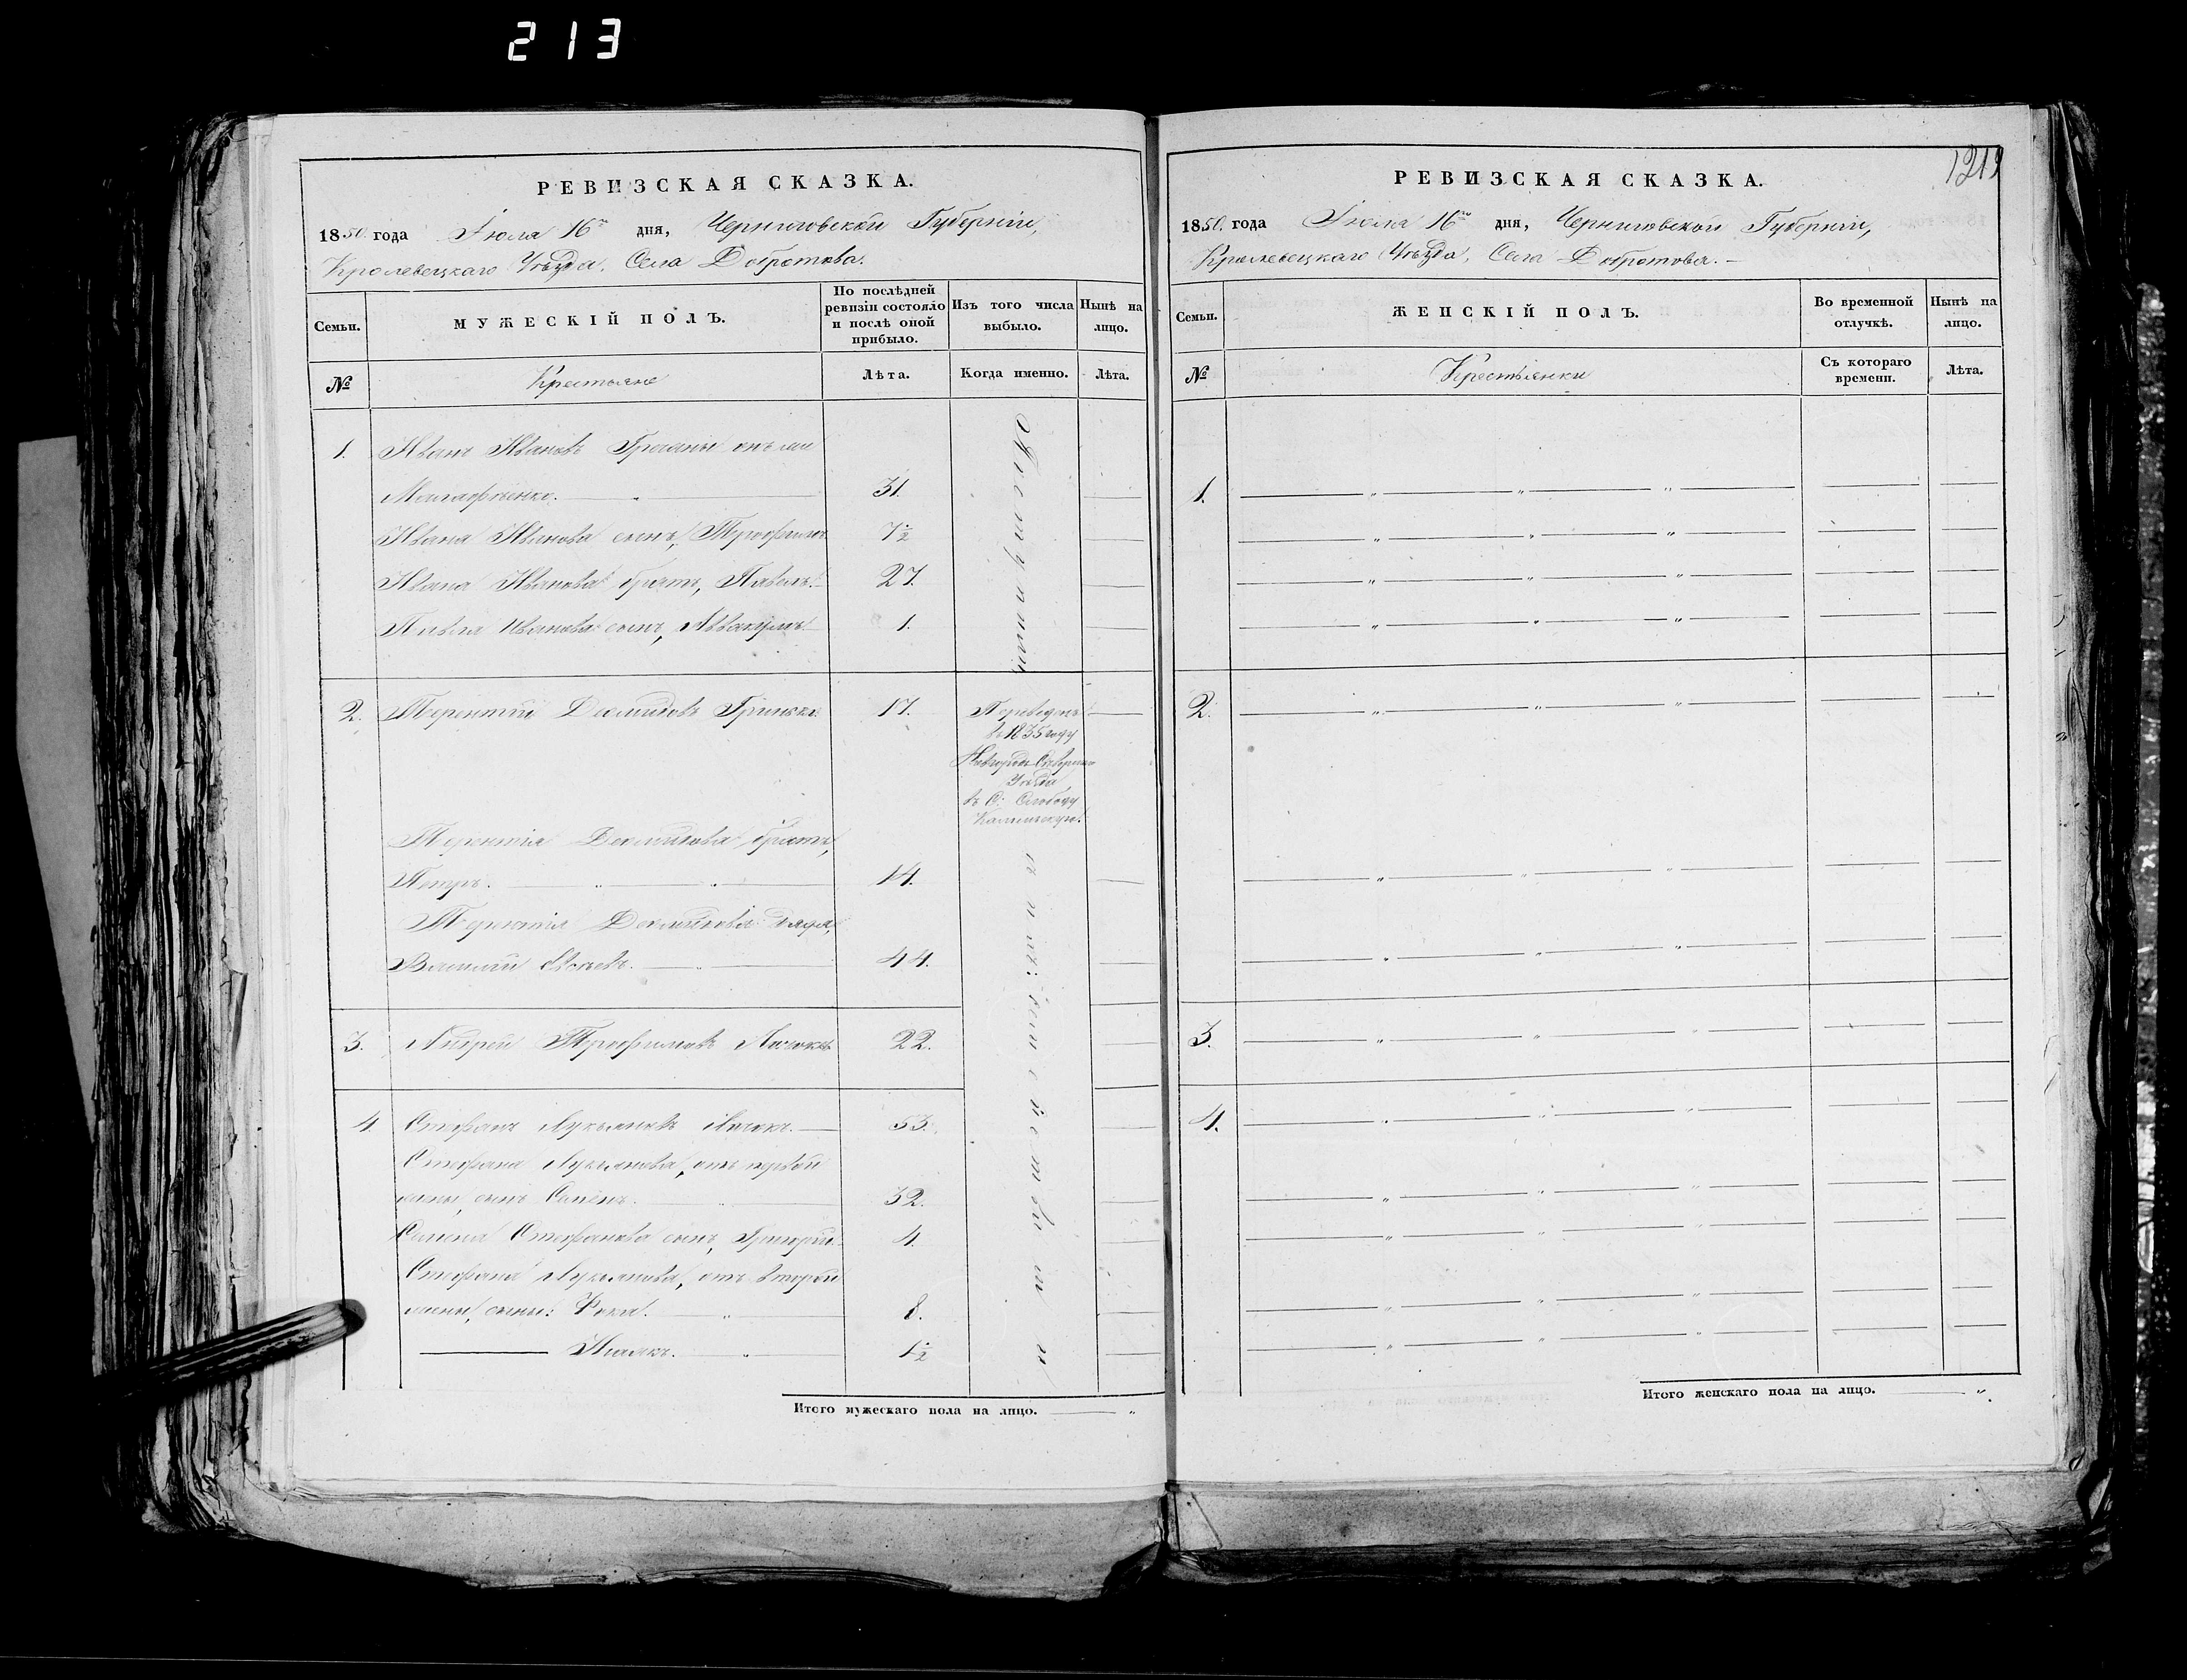 213
РЕВИЗСКАЯ СКАЗКА.
1850. года Іюля 16го дня, Черниговской Губерніи,
Кролевецкаго Уѣзда, Села Добротова.
Семьи.
МУЖЕСКІЙ ПОЛЪ.
По послѣдней ревизіи состояло и послѣ оной прибыло.
Изъ того числа выбыло.
Нынѣ на лицо.
№
Крестьяне
Лѣта.
Когда именно.
Лѣта.
1. Иванъ Ивановъ
31.
Ивана Иванова сынъ, Трофимъ 7½
Ивана Иванова братъ, Павелъ. 27.
Павла Иванова сынъ, Аввакумъ 1.
2. Терентій Гринько. 17.
Переведенъ
въ 1835 году
Новгородъ Сѣверскаго
Уѣзда
въ С: Слободу
Терентія братъ,
Петръ. 14.
Терентія дядя,
Василій Евсѣевъ. 44.
3. Андрей Трофимовъ 22.
4. Стефанъ Лукьяновъ 53.
Стефана Лукьянова, отъ первой
жены, сынъ Семенъ. 32.
Семена Стефанова сынъ, Григорій. 4.
Стефана Лукьянова, отъ второй
жены, сыны: Фока. 8.
1½
Итого мужескаго пола на лицо. "
1219
РЕВИЗСКАЯ СКАЗКА.
1850. года Іюля 16го дня, Черниговской Губерніи,
Кролевецкаго Уѣзда, Села Добротова.
Семьи.
ЖЕНСКІЙ ПОЛЪ.
Во временной отлучкѣ.
Нынѣ на лицо.
№
Крестьянки
Съ котораго времени.
Лѣта.
1.
2.
3.
4.
Итого женскаго пола на лицо. "